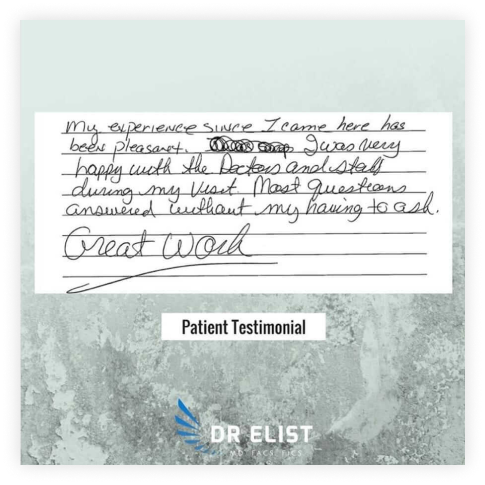 My experience since I came here has
been pleasant. I was very
happy with the Doctors and staff
during my visit. Most Questions
answered without my having to ask.
Great Work
Patient Testimonial
DR ELIST
MD FACS FICS